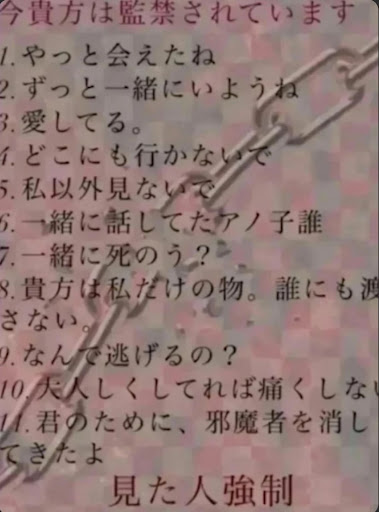 今貴方は監禁されています
1.やっと会えたね
2.ずっと一緒にいようね
3.愛してる。
4.どこにも行かないで
5.私以外見ないで
6.一緒に話してたアノ子誰
7.一緒に死のう？
8.貴方は私だけの物。誰にも渡
さない。
9.なんで逃げるの？
10.大人しくしてれば痛くしない
11.君のために、邪魔者を消し
てきたよ
見た人強制